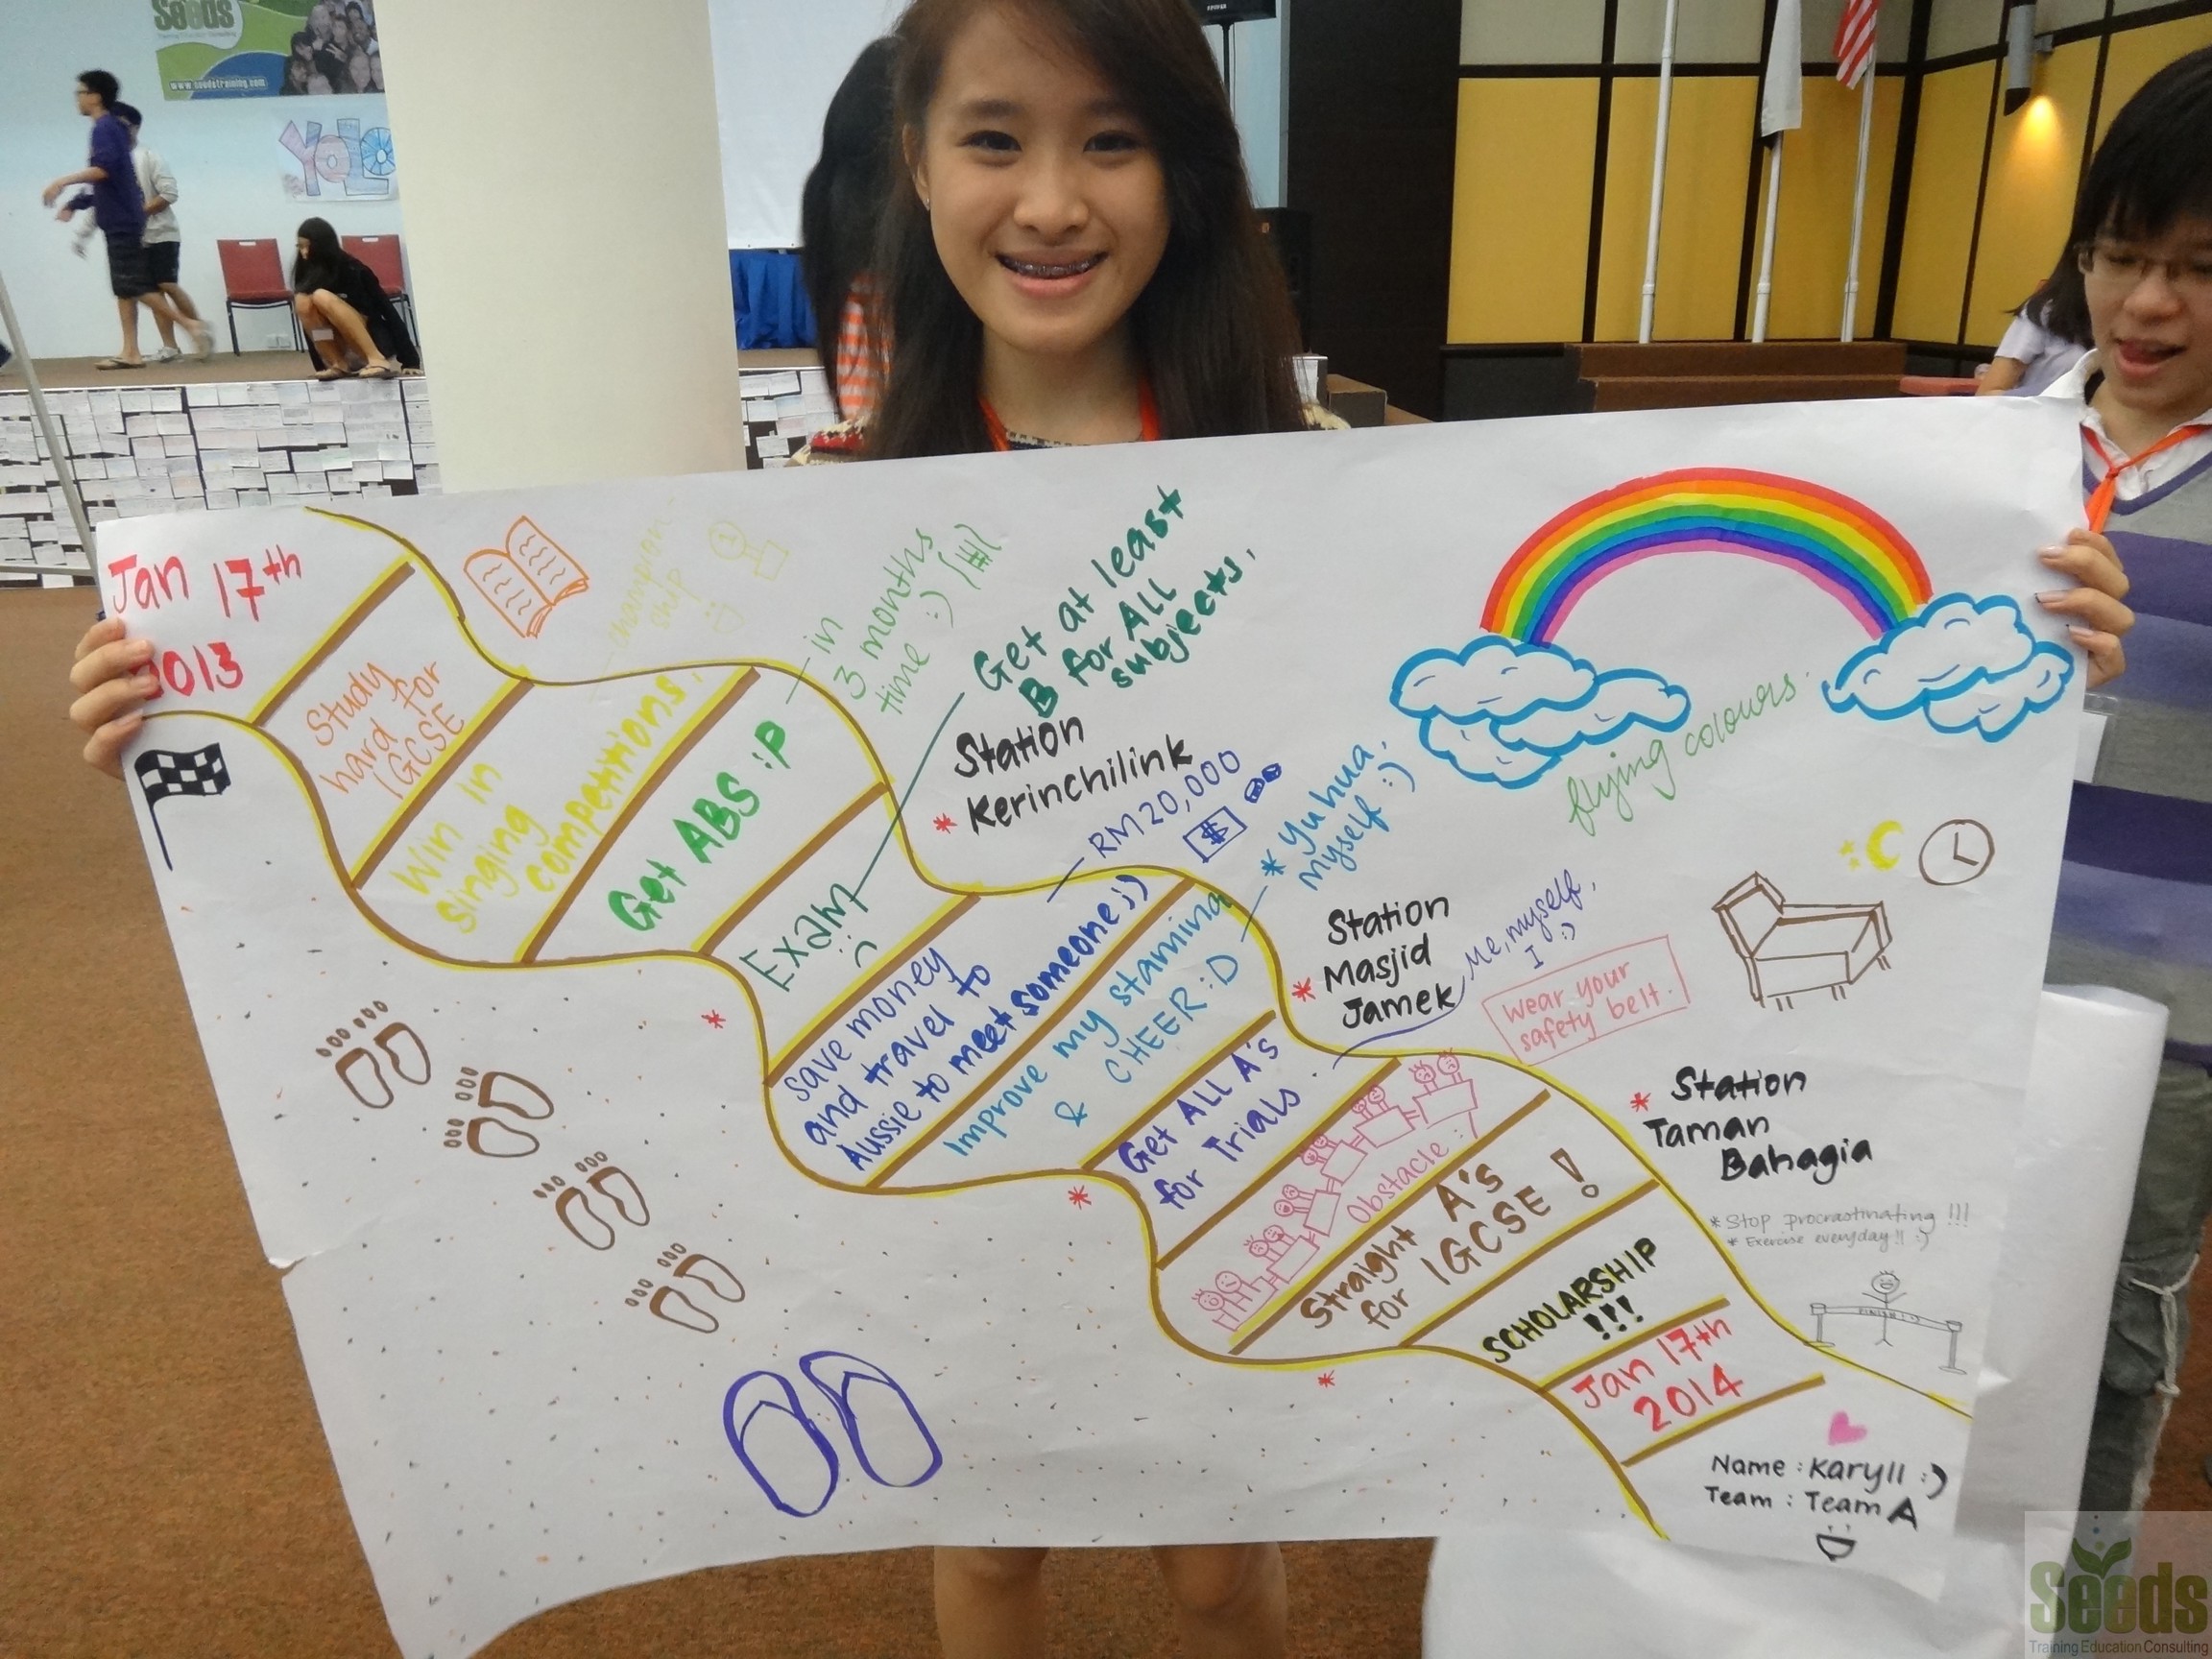 Seeds
Training Education Consulting
www.seedstraining.com
YOLO
Jan 17th
2013
Study
hard for
IGCSE
Win in
singing
competitions,
champion-
ship
Get ABS :P
in
3 months
time :)
Exam
:(
Get at least
B for All
subjects,
* Station
Kerinchilink
Save money
and travel to
Aussie to meet someone ;)
RM20,000
$
Improve my stamina
& CHEER :D
* Yuhua,
myself :)
* Station
Masjid
Jamek
Get All A's
for Trials.
Me, myself,
I :)
Wear your
safety belt.
Obstacle :)
flying colours.
* Station
Taman
Bahagia
Straight A's
for IGCSE !
* Stop procrastinating !!!
* Exercise everyday!! :)
FINISH
SCHOLARSHIP
!!!
Jan 17th
2014
Name : Karyll :)
Team : Team A
Seeds
Training Education Consulting